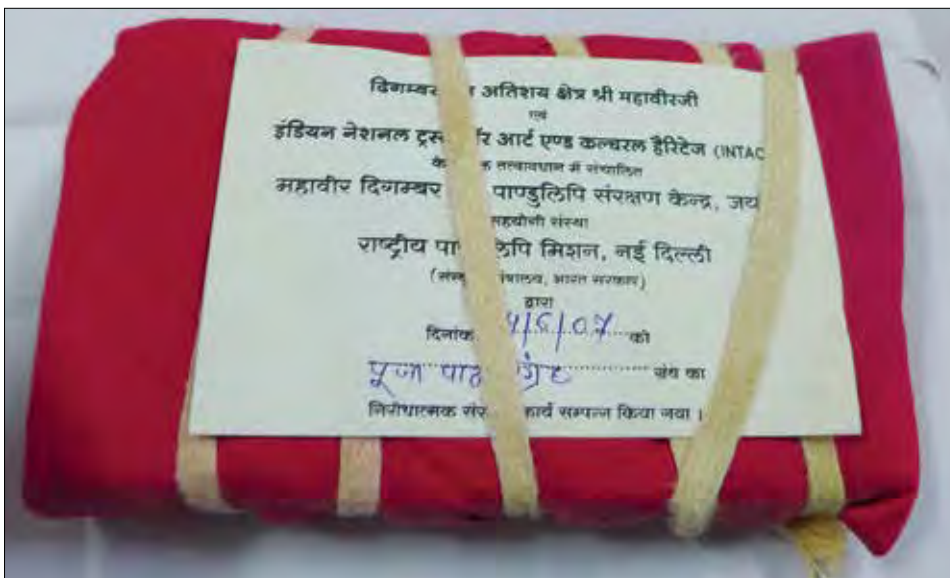 दिगम्बर अतिशय क्षेत्र श्री महावीरजी
एवं
इंडियन नेशनल ट्रस र आर्ट एण्ड कल्चरल हैरिटेज (INTAC
के क तत्वावधान में संचालित
महावीर दिगम्बर पाण्डुलिपि संरक्षण केन्द्र, जय
सहयोगी संस्था
राष्ट्रीय पा लिपि मिशन, नई दिल्ली
(संस् मंत्रालय, भारत सरकार)
द्वारा
दिनांक 4/6/07 को
पूजा पाठ ग्रंथ का
निरोधात्मक संर कार्य सम्पन्न किया गया ।